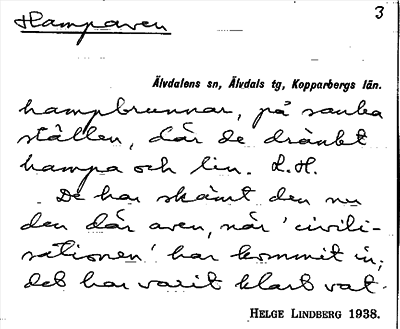 Hampaven
3
Älvdalens sn, Älvdals tg, Kopparbergs län.
hampbrunnar, på sanka
ställen, där de dränkt
hampa och lin. L.H.
De har skämt den nu
den där aven, när 'civili-
sationen' har kommit in;
det har varit klart vat-
HELGE LINDBERG 1938.